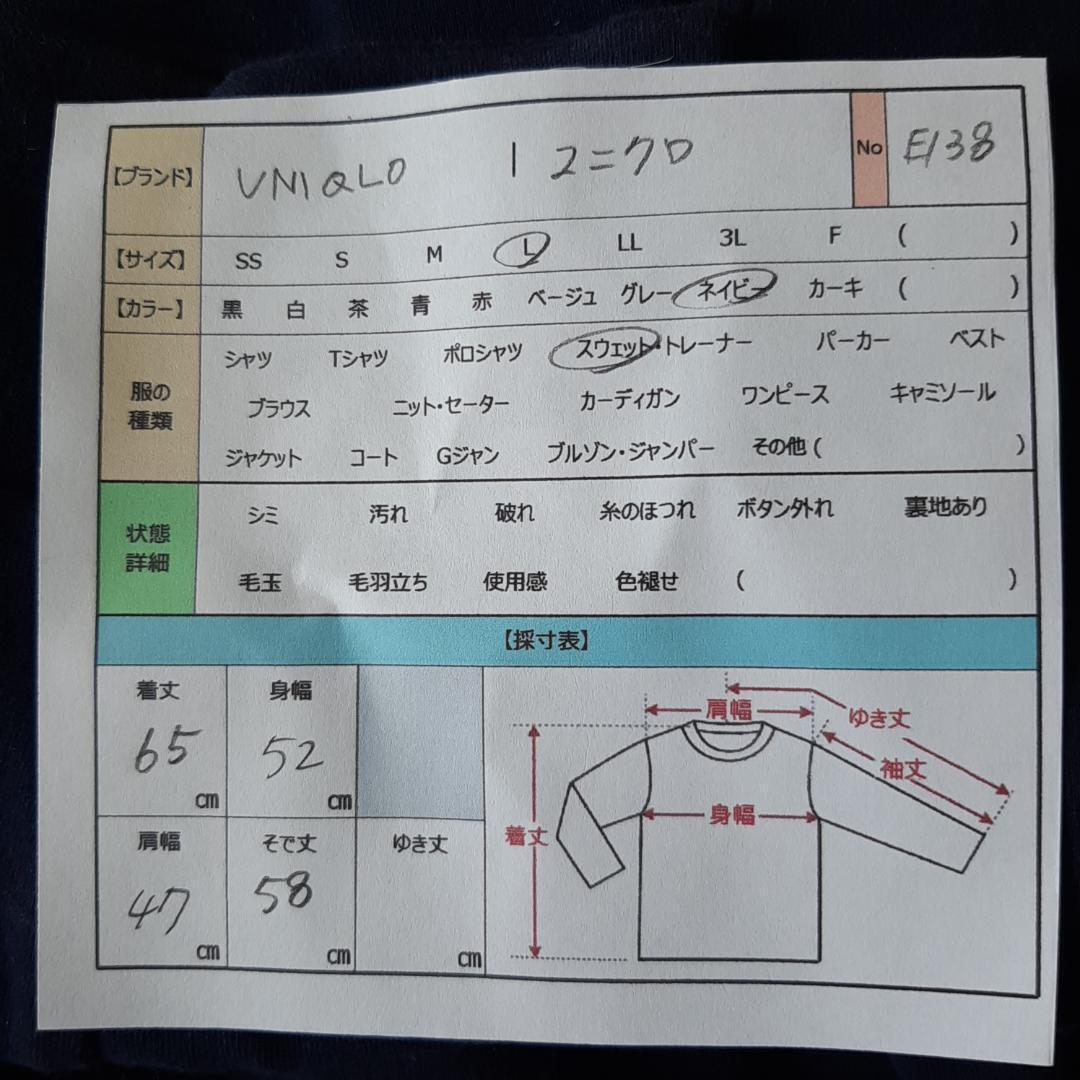 【ブランド】 UNIQLO | ユニクロ No E138
【サイズ】 SS S M L LL 3L F ( )
【カラー】 黒 白 茶 青 赤 ベージュ グレー ネイビー カーキ ( )
服の種類
シャツ Tシャツ ポロシャツ スウェット・トレーナー パーカー ベスト
ブラウス ニット・セーター カーディガン ワンピース キャミソール
ジャケット コート Gジャン ブルゾン・ジャンパー その他 ( )
状態詳細
シミ 汚れ 破れ 糸のほつれ ボタン外れ 裏地あり
毛玉 毛羽立ち 使用感 色褪せ ( )
【採寸表】
着丈 65 cm
身幅 52 cm
肩幅 47 cm
そで丈 58 cm
ゆき丈 cm
肩幅
ゆき丈
袖丈
身幅
着丈